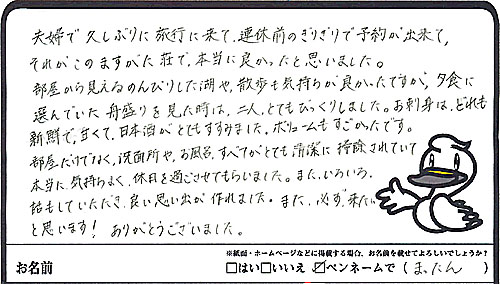 夫婦で久しぶりに旅行に来て、連休前のぎりぎりで予約が出来て、
それがこのますがた荘で、本当に良かったと思いました。
部屋から見えるのんびりした湖や、散歩も気持ちが良かったですが、夕食に
選んでいた舟盛りを見た時は、二人とてもびっくりしました。お刺身は、どれも
新鮮で、甘くて、日本酒がとてもすすみました。ボリュームもすごかったです。
部屋だけでなく、洗面所や、お風呂、すべてがとても清潔に掃除されていて
本当に、気持ちよく、休日を過ごさせてもらいました。また、いろいろ
話もしていただき、良い思い出が作れました。また、必ず来たい
と思います! ありがとうございました。
※紙面・ホームページなどに掲載する場合、お名前を載せてよろしいでしょうか?
お名前 □はい □いいえ ☑ペンネームで ( まったん )